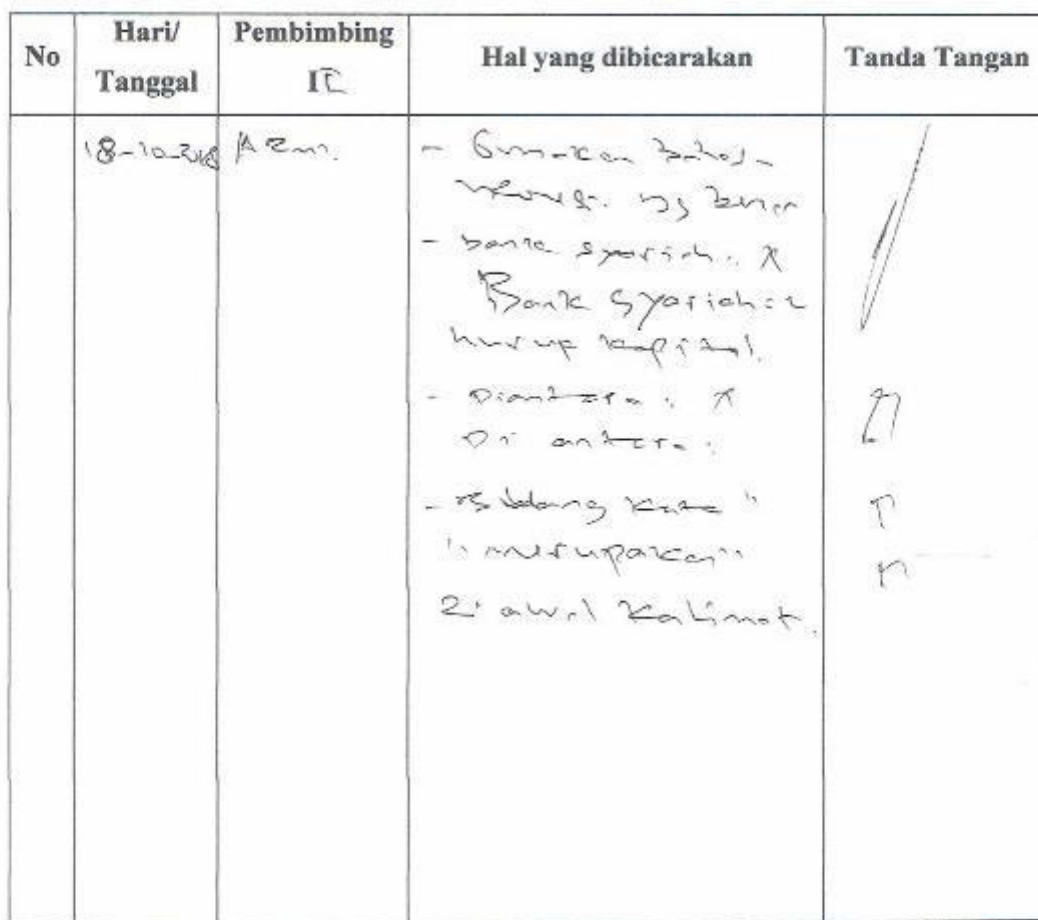 No Hari/ Tanggal Pembimbing II Hal yang dibicarakan Tanda Tangan
18-10-2018 Azmi. - Gunakan Bahasa
yg benar
- bank syariah : X
Bank Syariah :
hurup kapital.
- Diantara : X
Di antara :
- kata "
"merupakan"
Di awal Kalimat.